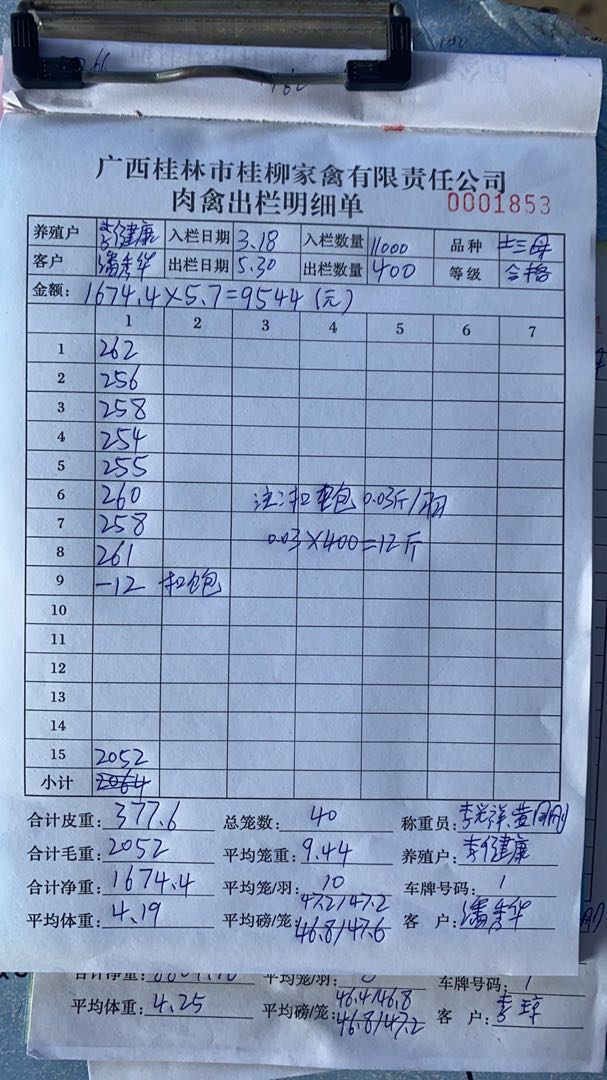 广西桂林市桂柳家禽有限责任公司
肉禽出栏明细单 0001853
养殖户 李健康 入栏日期 3.18 入栏数量 11000 品种 土三母
客户 潘秀华 出栏日期 5.30 出栏数量 400 等级 合格
金额: 1674.4×5.7=9544(元)
1 2 3 4 5 6 7
1 262
2 256
3 258
4 254
5 255
6 260 注:扣 包 0.03斤/羽
7 258
8 261 0.03×400=12斤
9 -12 扣 包
10
11
12
13
14
15 2052
小计 2064
合计皮重: 377.6 总笼数: 40 称重员:
合计毛重: 2052 平均笼重: 9.44 养殖户: 李健康
合计净重: 1674.4 平均笼/羽: 10 车牌号码: 1
平均体重: 4.19 平均磅/笼: 47.2/47.2 46.8/47.6 客 户: 潘秀华
合计净重: 平均笼/羽: 车牌号码: 1
平均体重: 4.25 平均磅/笼: 46.4/46.8 46.8/47.2 客 户: 李琼